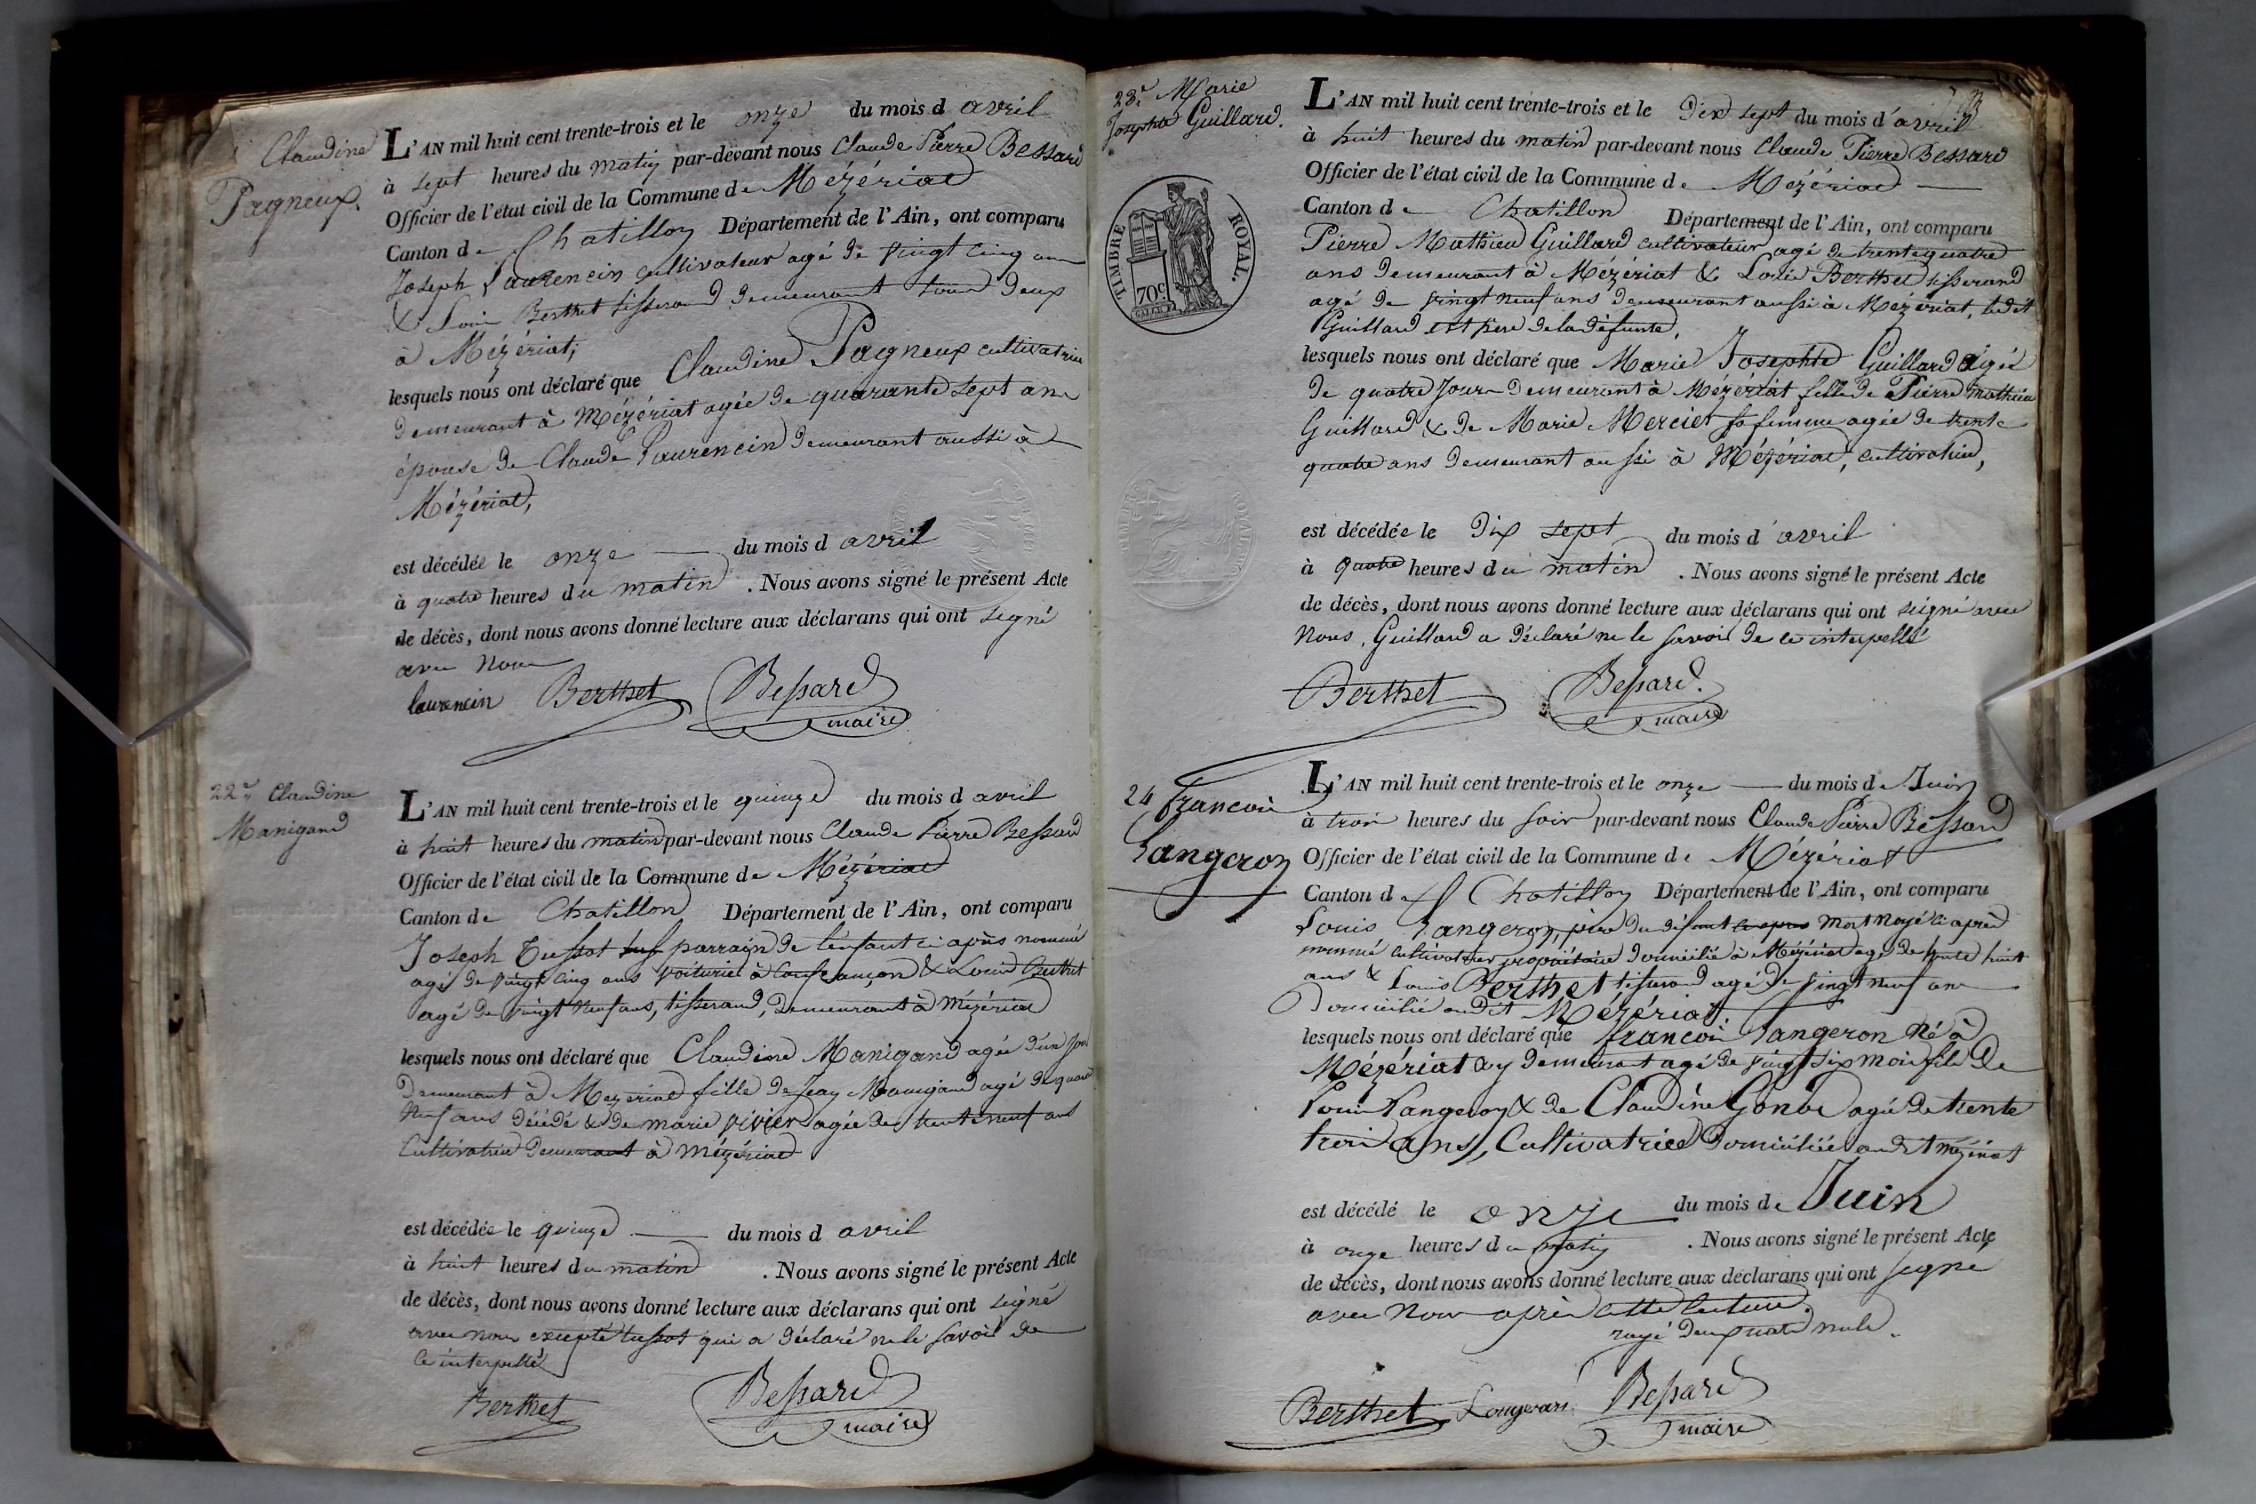 Claudine
Pagneux.
L'AN mil huit cent trente-trois et le onze du mois d avril
à sept heures du matin par-devant nous Claude Pierre Bessard
Officier de l'état civil de la Commune de Mézériat
Canton de Chatillon Département de l'Ain, ont comparu
Joseph Laurencin cultivateur agé de vingt cinq ans
& Louis Berthet tisserand demeurant tous deux
à Mézériat;
lesquels nous ont déclaré que Claudine Pagneux cultivatrice
demeurant à Mézériat agée de quarante sept ans
épouse de Claude Laurencin demeurant aussi à
Mézériat,
est décédée le onze du mois d avril
à quatre heures du matin . Nous avons signé le présent Acte
de décès, dont nous avons donné lecture aux déclarans qui ont signé
avec nous
laurencin Berthet Bessard
maire
22e Claudine
Manigand
L'AN mil huit cent trente-trois et le quinze du mois d avril
à huit heures du matin par-devant nous Claude Pierre Bessard
Officier de l'état civil de la Commune de Mézériat
Canton de Chatillon Département de l'Ain, ont comparu
Joseph Tussot parrain de l'enfant ci après nommé
agé de vingt cinq ans voiturier à Confrançon & Louis Berthet
agé de vingt neuf ans, tisserand, demeurant à Mézériat
lesquels nous ont déclaré que Claudine Manigand agée d'un jour
demeurant à Mezeriat fille de Jean Manigand agé de
neuf ans décédé & de marie vivier agée de trente neuf ans
Cultivatrice demeurant à mézériat
est décédée le quinze du mois d avril
à huit heures du matin . Nous avons signé le présent Acte
de décès, dont nous avons donné lecture aux déclarans qui ont signé
avec nous excepté tussot qui a déclaré ne le savoir de
ce interpellé
Berthet Bessard
maire
23e Marie
Josephte Guillard.
TIMBRE ROYAL.
70c
L'AN mil huit cent trente-trois et le dix sept du mois d'avril
à huit heures du matin par-devant nous Claude Pierre Bessard
Officier de l'état civil de la Commune de Mézériat
Canton de Chatillon Département de l'Ain, ont comparu
Pierre Mathieu Guillard cultivateur agé de trente quatre
ans demeurant à Mézériat & Louis Berthet tisserand
agé de vingt neuf ans demeurant aussi à Mézériat, ledit
Guillard est père de la défunte,
lesquels nous ont déclaré que Marie Josephte Guillard agée
de quatre jours demeurant à Mézériat fille de Pierre Mathieu
Guillard & de Marie Mercier sa femme agée de trente
quatre ans demeurant aussi à Mézériat, cultivatrice,
est décédée le dix sept du mois d'avril
à quatre heures du matin . Nous avons signé le présent Acte
de décès, dont nous avons donné lecture aux déclarans qui ont signé avec
nous, Guillard a déclaré ne le savoir de ce interpellé
Berthet Bessard.
maire
24 francois
Langeron
L'AN mil huit cent trente-trois et le onze du mois de Juin
à trois heures du soir par-devant nous Claude Pierre Bessard
Officier de l'état civil de la Commune de Mézériat
Canton de Chatillon Département de l'Ain, ont comparu
Louis Langeron, père du défunt ci après mort noyé ci après
nommé cultivateur propriétaire domicilié à Mézériat agé de trente huit
ans & Louis Berthet tisserand agé de vingt neuf ans
domicilié audit Mézériat
lesquels nous ont déclaré que francois Langeron né à
Mézériat & y demeurant agé de vingt six mois fils de
Louis Langeron & de Claudine Gonod agée de trente
trois ans, Cultivatrice domiciliée audit mézériat
est décédé le onze du mois de Juin
à onze heures du matin . Nous avons signé le présent Acte
de décès, dont nous avons donné lecture aux déclarans qui ont signé
avec nous après cette lecture.
rayé deux mots nuls.
Berthet Langeron Bessard
maire